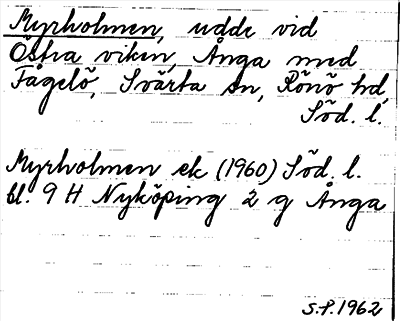 Myrholmen, udde vid
Östra viken, Ånga med
Fågelö, Svärta sn, Rönö hd,
Söd. l.
Myrholmen ek (1960) Söd. l.
bl. 9 H Nyköping 2 g Ånga
S.P. 1962